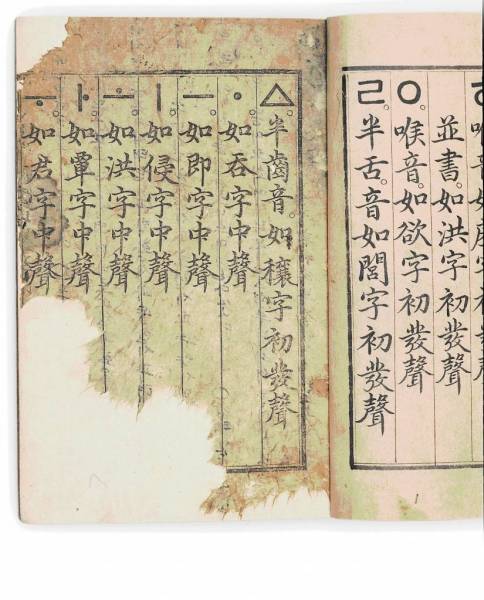 並書。如洪字初發聲
ㅇ。喉音。如欲字初發聲
ㄹ。半舌。音如閭字初發聲
1
ㅿ。半齒音。如穰字初發聲
ㆍ。如吞字中聲
ㅡ。如即字中聲
ㅣ。如侵字中聲
ㅗ。如洪字中聲
ㅏ。如覃字中聲
ㅜ。如君字中聲